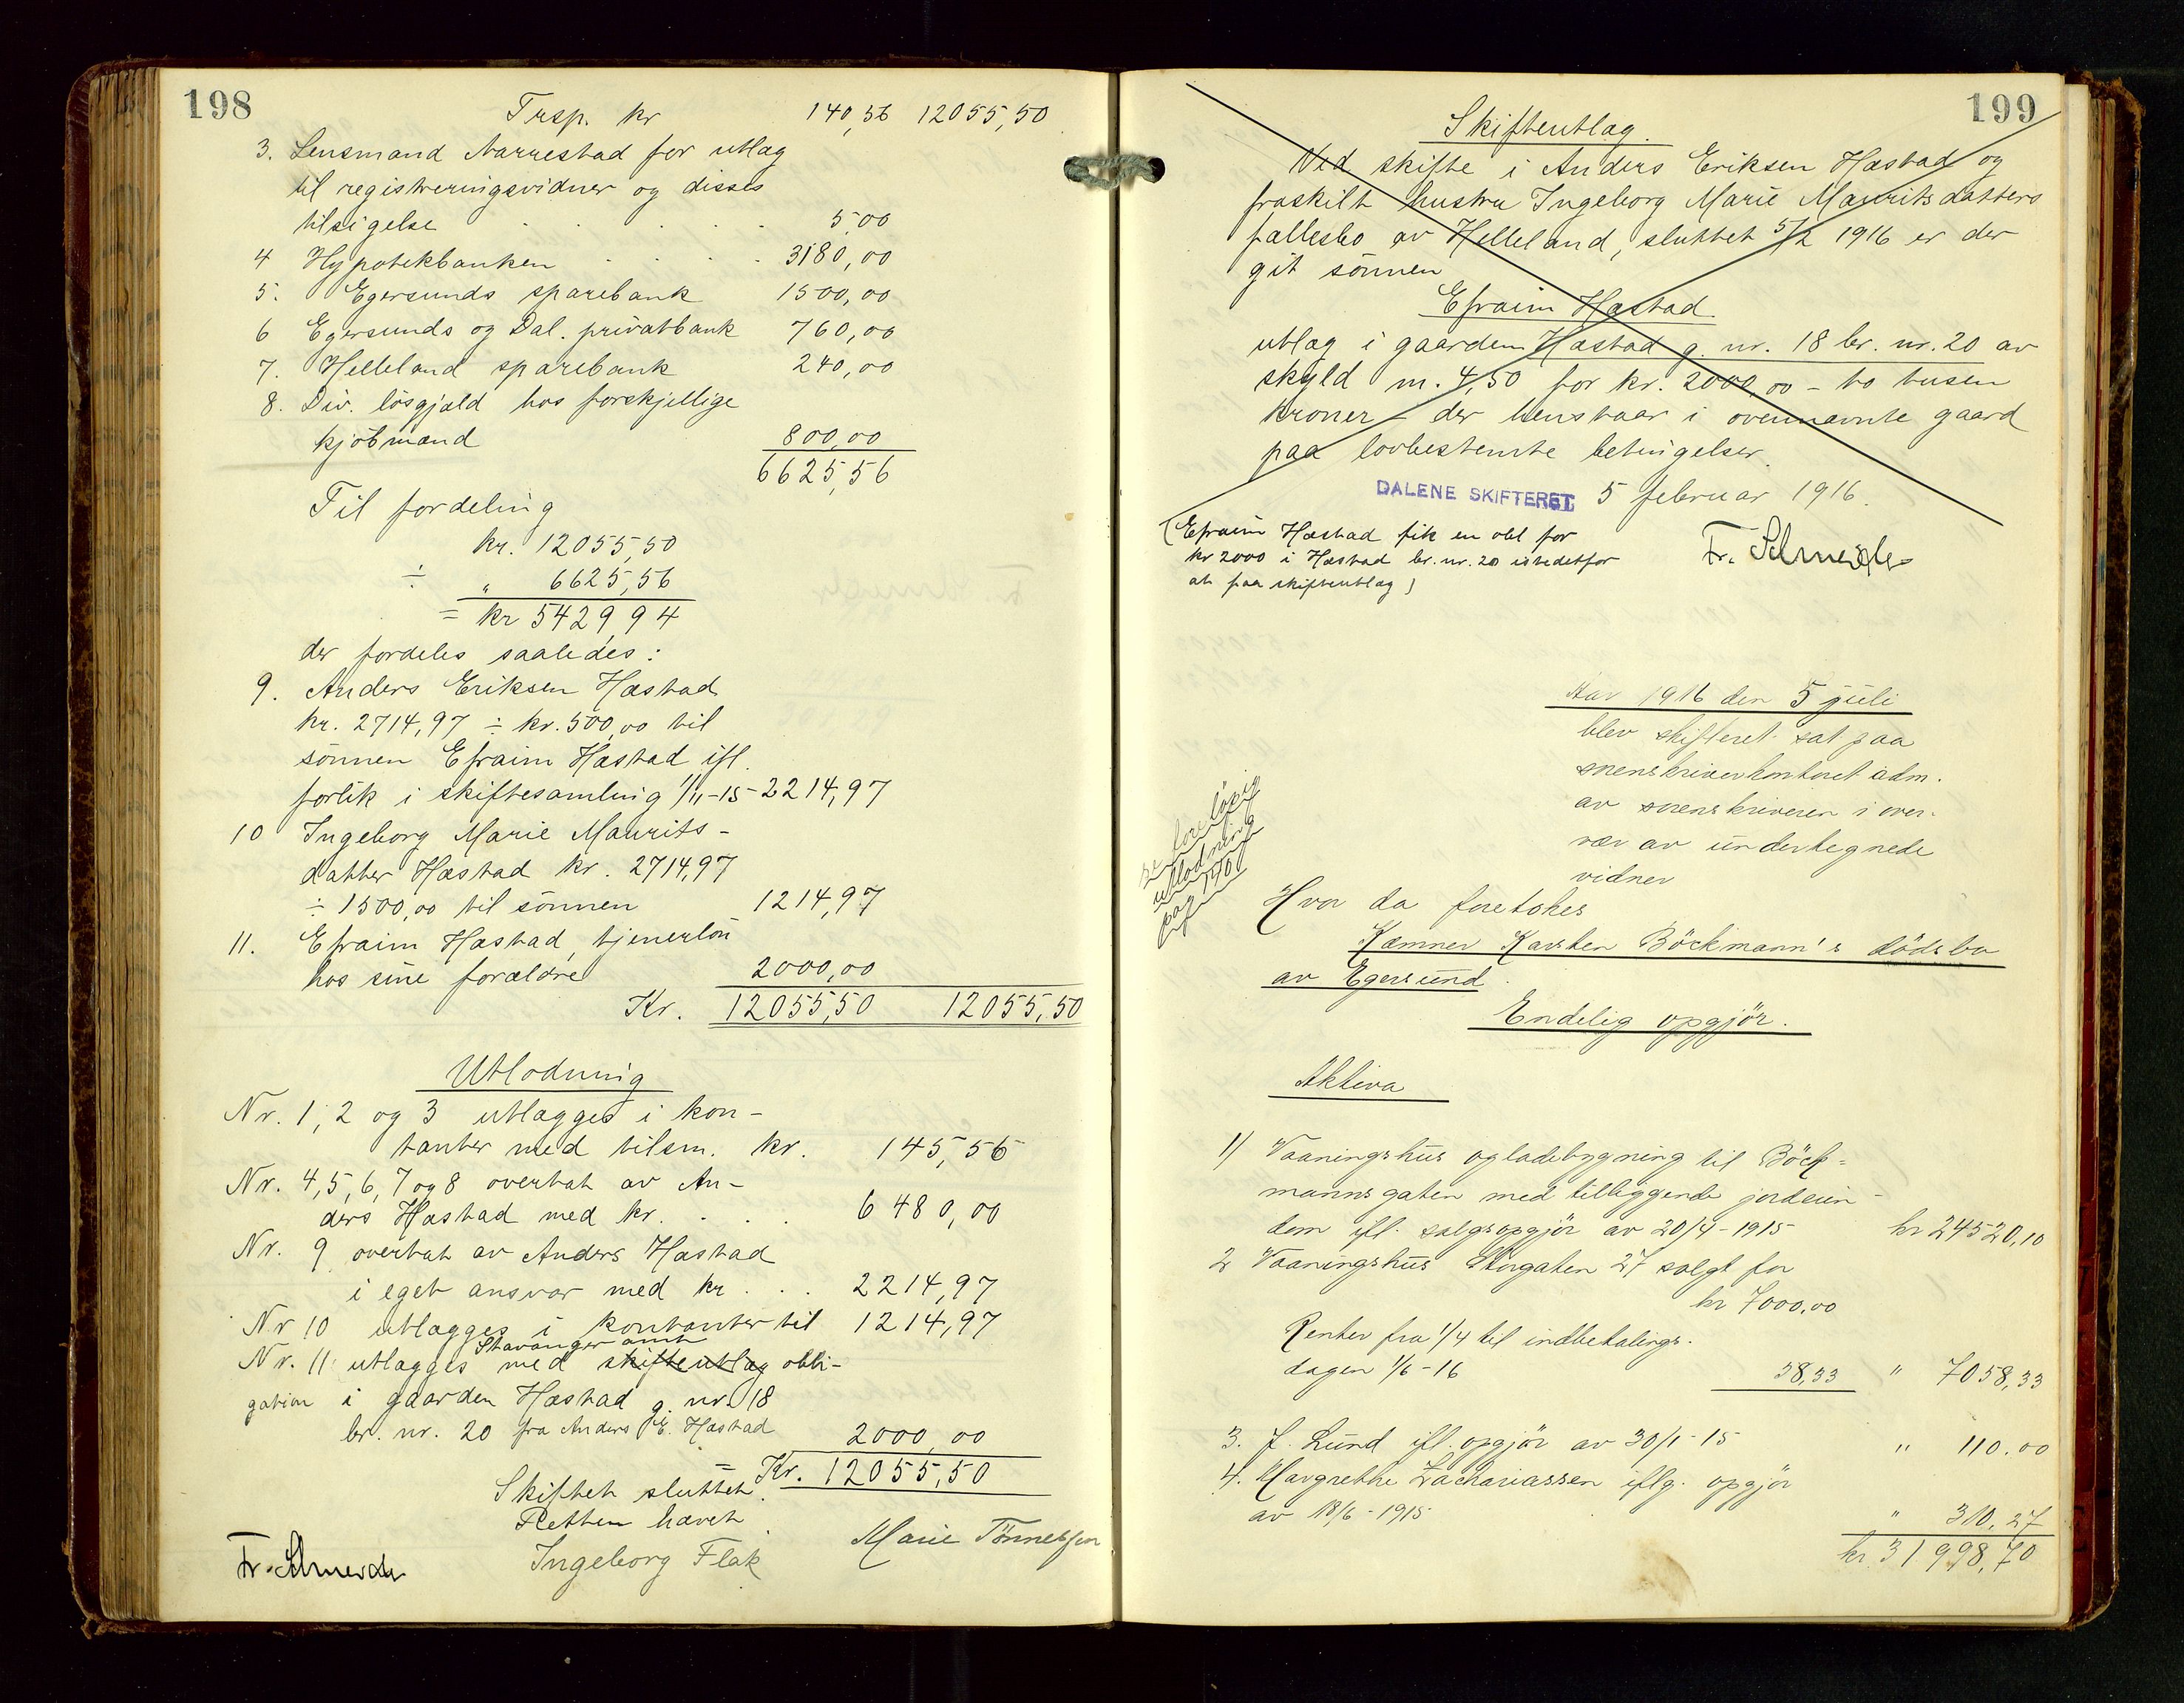 198
Trsp. kr 140,56 12055,50
3. Lensmand Narrestad for utlæg
til registreringsvidner og disses
tilsigelse . . . . . 5,00
4 Hypotekbanken . . . . 3180,00
5. Egersunds sparebank 1500,00
6 Egersunds og Dal. privatbank 760,00
7. Helleland sparebank 240,00
8. Div. løsgjæld hos forskjellige
kjöbmænd 800,00
6625,56
Til fordeling
kr. 12055,50
÷ " 6625,56
= kr 5429,94
der fordeles saaledes:
9. Anders Eriksen Hæstad
kr. 2714,97 ÷ kr. 500,00 til
sönnen Efraim Hæstad ifl.
forlik i skiftesamling 1/11-15 - 2214,97
10 Ingeborg Marie Maurits-
datter Hæstad kr. 2714,97
÷ 1500,00 til sönnen 1214,97
11. Efraim Hæstad, tjenerlön
hos sine forældre 2000,00
Kr. 12055,50 12055,50
Utlodning
Nr. 1, 2 og 3 utlægges i kon-
tanter med tilsm. kr. 145,56
Nr. 4, 5, 6, 7 og 8 overtat av An-
ders Hæstad med kr. . . . 6480,00
Nr. 9 overtat av Anders Hæstad
i eget ansvar med kr . . . 2214,97
Nr 10 utlægges i kontanter til 1214,97
Stavanger amt
Nr. 11 utlægges med skifteutlæg obli-
gation i gaarden Hæstad g. nr. 18
br. nr. 20 fra Anders E. Hæstad 2000,00
= Kr. 12055,50
Skiftet sluttet.
Retten hævet.
Fr. Schneider Ingeborg Flak Marie Tönnessen
199
Skifteutlæg.
Ved skifte i Anders Eriksen Hæstad og
fraskilt hustru Ingeborg Marie Mauritsdatters
fællesbo av Helleland, sluttet 5/2 1916 er der
git sönnen
Efraim Hæstad.
utlæg i gaarden Hæstad g. nr. 18 br. nr. 20 av
skyld m. 4,50 for kr. 2000,00 - to tusen
kroner - der henstaar i ovennævnte gaard
paa lovbestemte betingelser.
DALENE SKIFTERET 5 februar 1916.
Fr. Schneider
(Efraim Hæstad fik en obl for
kr 2000 i Hæstad br. nr. 20 istedetfor
at faa skifteutlæg)
Aar 1916 den 5 juli
blev skifteret sat paa
sorenskriverkontoret adm.
av sorenskriveren i over-
vær av undertegnede
vidner
se foreløpig
utlodning
pag 190
Hvor da foretokes
Kæmner Karsten Böckmann's dödsbo
av Egersund.
Endelig opgjör.
Aktiva
1) Vaaningshus og ladebygning til Böck-
mannsgaten med tilliggende jordeien-
dom ifl. salgsopgjör av 20/4-1915 kr 24520,10
2 Vaaningshus Storgaten 27 solgt for
kr 7000,00
Renter fra 1/4 til indbetalings-
dagen 1/6-16 58,33 " 7058,33
3. J. Lund ifl. opgjör av 30/1-15 " 110.00
4. Margrethe Zachariassen iflg. opgjör
av 18/6-1915 " 310,27
kr. 31998,70